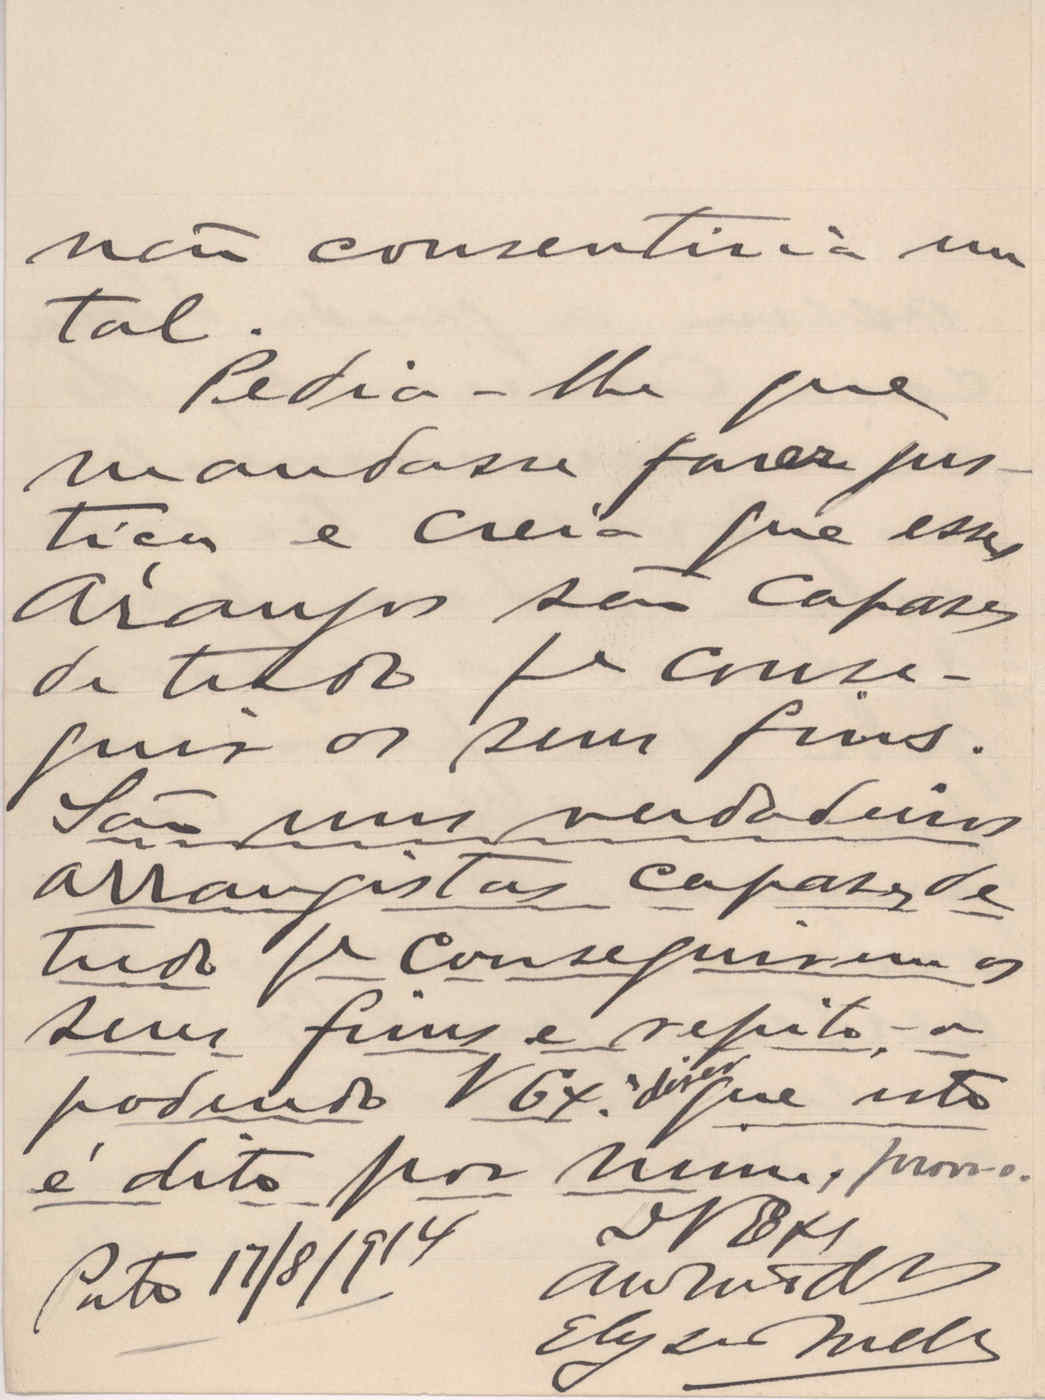 não consentiria um
tal.
Pedia-lhe que
mandasse fazer jus-
tiça e creia que esses
Araujos são capases
de tudo pa conse-
guir os seus fins.
São uns verdadeiros
arrangistas capases de
tudo pa conseguirem os
seus fins e repito-o
podendo V Ex.a dizer que isto
é dito por mim, provo-o.
D V Exa
Porto 17/8/1914
Elyseu Mello